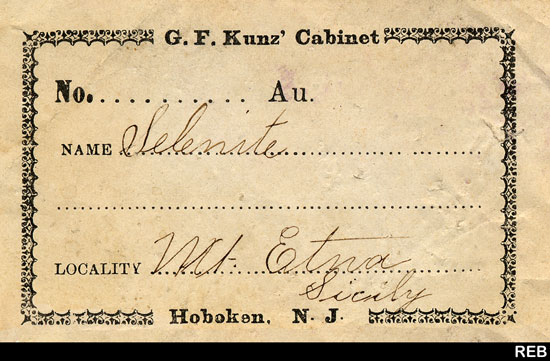 G. F. Kunz' Cabinet
No. . . . . . . . . . . . Au.
NAME Selenite
LOCALITY Mt. Etna
Sicily
Hoboken, N. J.
REB